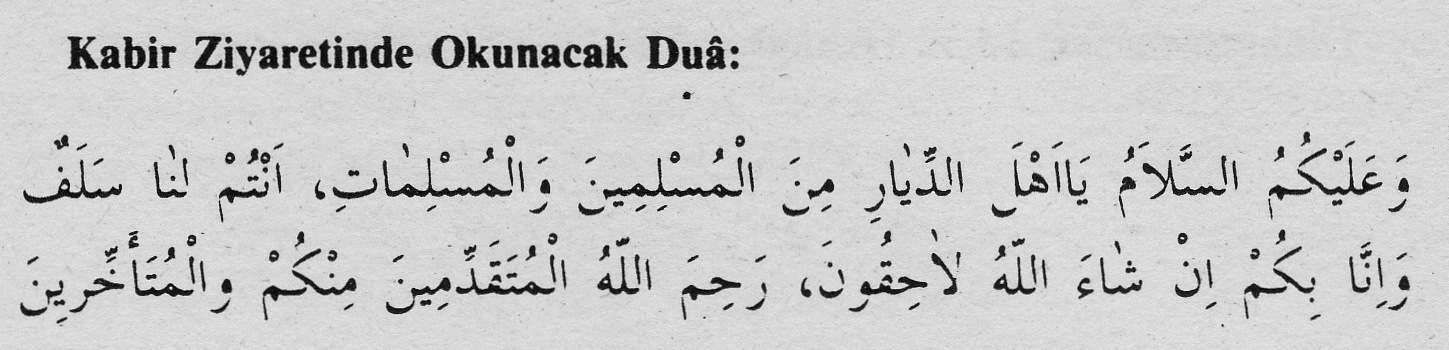 Kabir Ziyaretinde Okunacak Duâ:
وَعَلَيْكُمُ السَّلاَمُ يَااَهْلَ الدِّيٰارِ مِنَ الْمُسْلِمِينَ وَالْمُسْلِمٰاتِ، اَنْتُمْ لنٰا سَلَفٌ
وَاِنَّا بِكُمْ اِنْ شٰاءَ اللّٰهُ لاٰحِقُونَ، رَحِمَ اللّٰهُ الْمُتَقَدِّمِينَ مِنْكُمْ والْمُتَأَخِّرِينَ